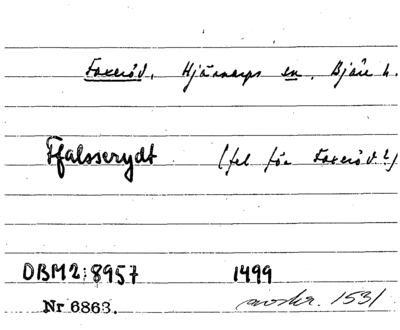 Foxeröd, Hjärnarps sn, Bjäre h.
Ffalsserydt (fel för Foxeröd?)
DBM2:8957 1499
Nr 6863. avskr. 1531